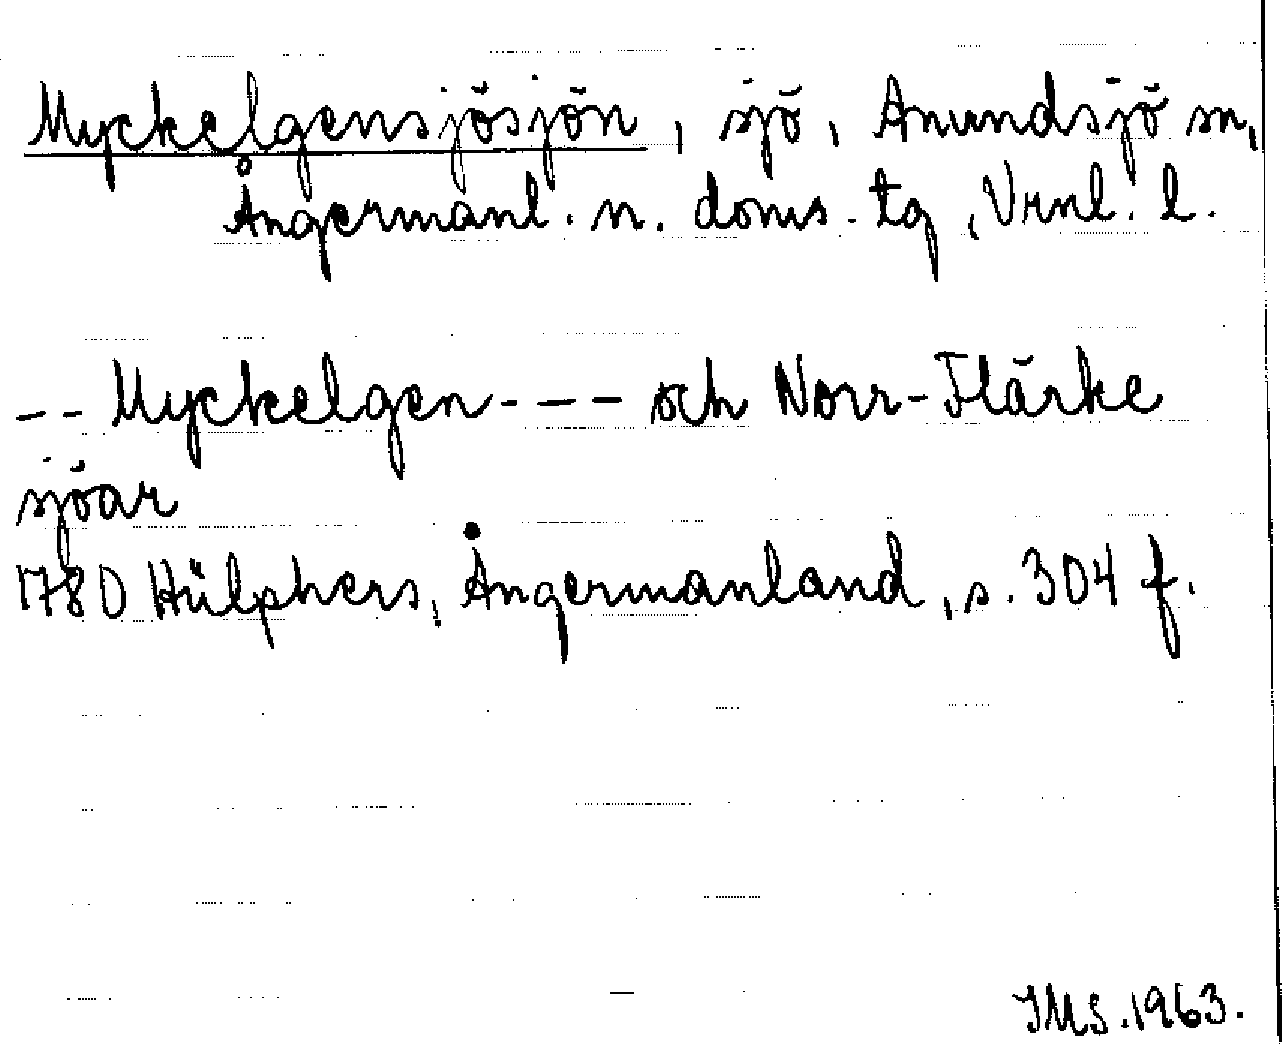 Myckelgensjösjön, sjö, Anundsjö sn,
Ångermanl. n. doms. tg, Vrnl. l.
-- Myckelgen ---- och Norr-Flärke
sjöar
1780 Hülphers, Ångermanland, s. 304 f.
IMS. 1963.